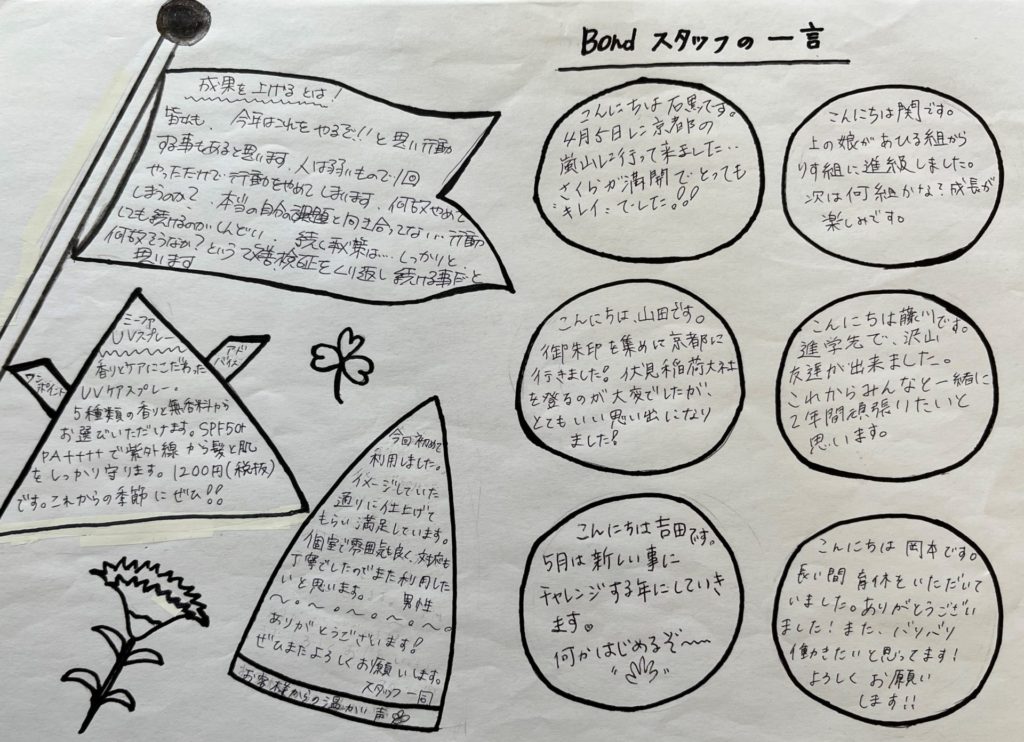 Bond スタッフの一言
成果を上げるとは!
皆さんも、今年はこれをやるぞ!!と思い行動
する事もあると思います、人は弱いもので1回
やっただけで、行動をやめてしまいます、何故やめて
しまうのか?、本当の自分の課題と向き合ってない、行動
しても続けるのがしんどい、、続く秘策は…しっかりと、
何故そうなか?という
検証をくり返し続ける事だと
思います
ミーファ
UVスプレー
ワンポイント
アドバイス
香りとケアにこだわった
UVケアスプレー。
5種類の香りと無香料から
お選びいただけます。SPF50+
PA++++で紫外線から髪と肌
をしっかり守ります。1200円(税抜)
です。これからの季節にぜひ!!
今回初めて
利用しました。
イメージしていた
通りに仕上げて
もらい満足しています。
個室で雰囲気も良く、対応も
丁寧でしたのでまた利用した
いと思います。 男性
〜。〜。〜。〜。〜。
ありがとうございます!
ぜひまたよろしくお願いします。
スタッフ一同
お客様からの温かい声
こんにちは石黒です。
4月5日に京都の
嵐山に行って来ました..
さくらが満開でとっても
キレイ:でした!!!
こんにちは関です。
上の娘があひる組から
りす組に進級しました。
次は何組かな?成長が
楽しみです。
こんにちは、山田です。
御朱印を集めに京都に
行きました!伏見稲荷大社
を登るのが大変でしたが、
とてもいい思い出になり
ました!
こんにちは藤川です。
進学先で、沢山
友達が出来ました。
これからみんなと一緒に
2年間頑張りたいと
思います。
こんにちは吉田です。
5月は新しい事に
チャレンジする年にしていき
ます。
何かはじめるぞ〜〜
こんにちは 岡本です。
長い間 育休をいただいて
いました。ありがとうござい
ました!また、バリバリ
働きたいと思ってます!
よろしくお願い
します!!